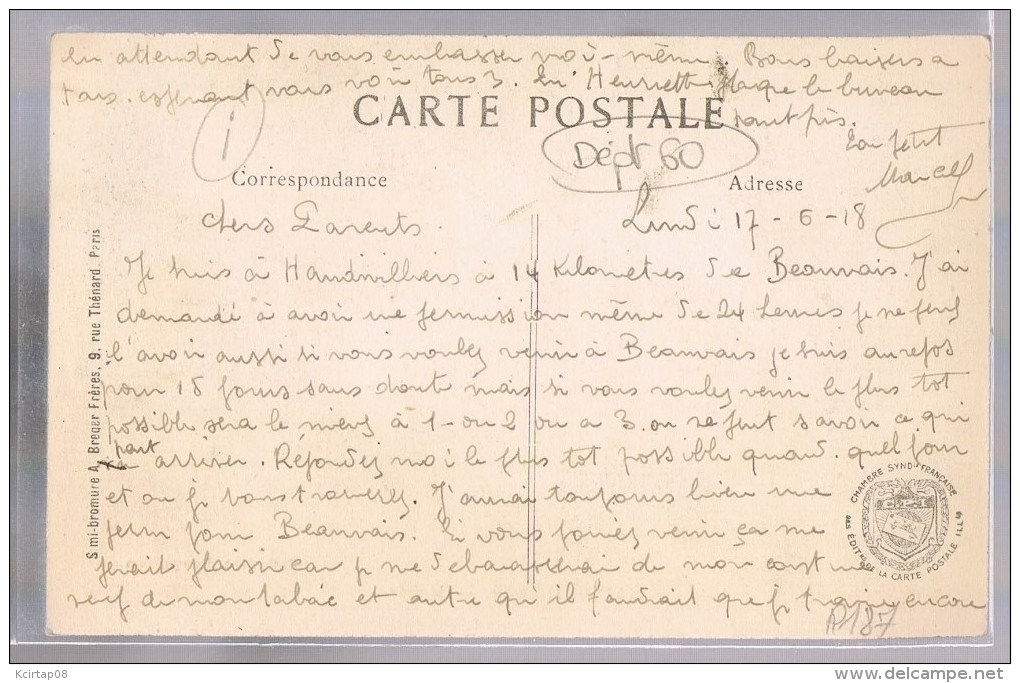 en attendant de vous embrasser moi-même. Bons baisers a
tous. espérant vous voir tous 3. Henriette le bureau
CARTE POSTALE
Dépt 60
sont pris.
Ton petit
Marcel
Correspondance
Adresse
Chers Parents.
Lundi 17-6-18
Je suis à Haudivilliers à 14 Kilomètres de Beauvais. J'ai
demandé à avoir une permission même de 24 heures je ne peux
l'avoir aussi si vous voulez venir à Beauvais je suis au repos
pour 15 jours sans doute mais si vous voulez venir le plus tot
possible sera le mieux à 1 ou 2 ou a 3. on ne peut savoir ce qui
peut arriver. Répondez moi le plus tot possible quand. quel jour
et ou je vous trouverez. J'aurai toujours bien une
perm pour Beauvais. Si vous pouviez venir ça me
ferait plaisir car je me debarasserai de mon costume
neuf de mon tabac et autre qu'il faudrait que je traine encore
A187
Simi-bromure A. Breger Frères, 9, rue Thénard, Paris
CHAMBRE SYND. FRANÇAISE
DES EDIT. DE LA CARTE POSTALE ILL.
Kcirtap08
www.delcampe.net